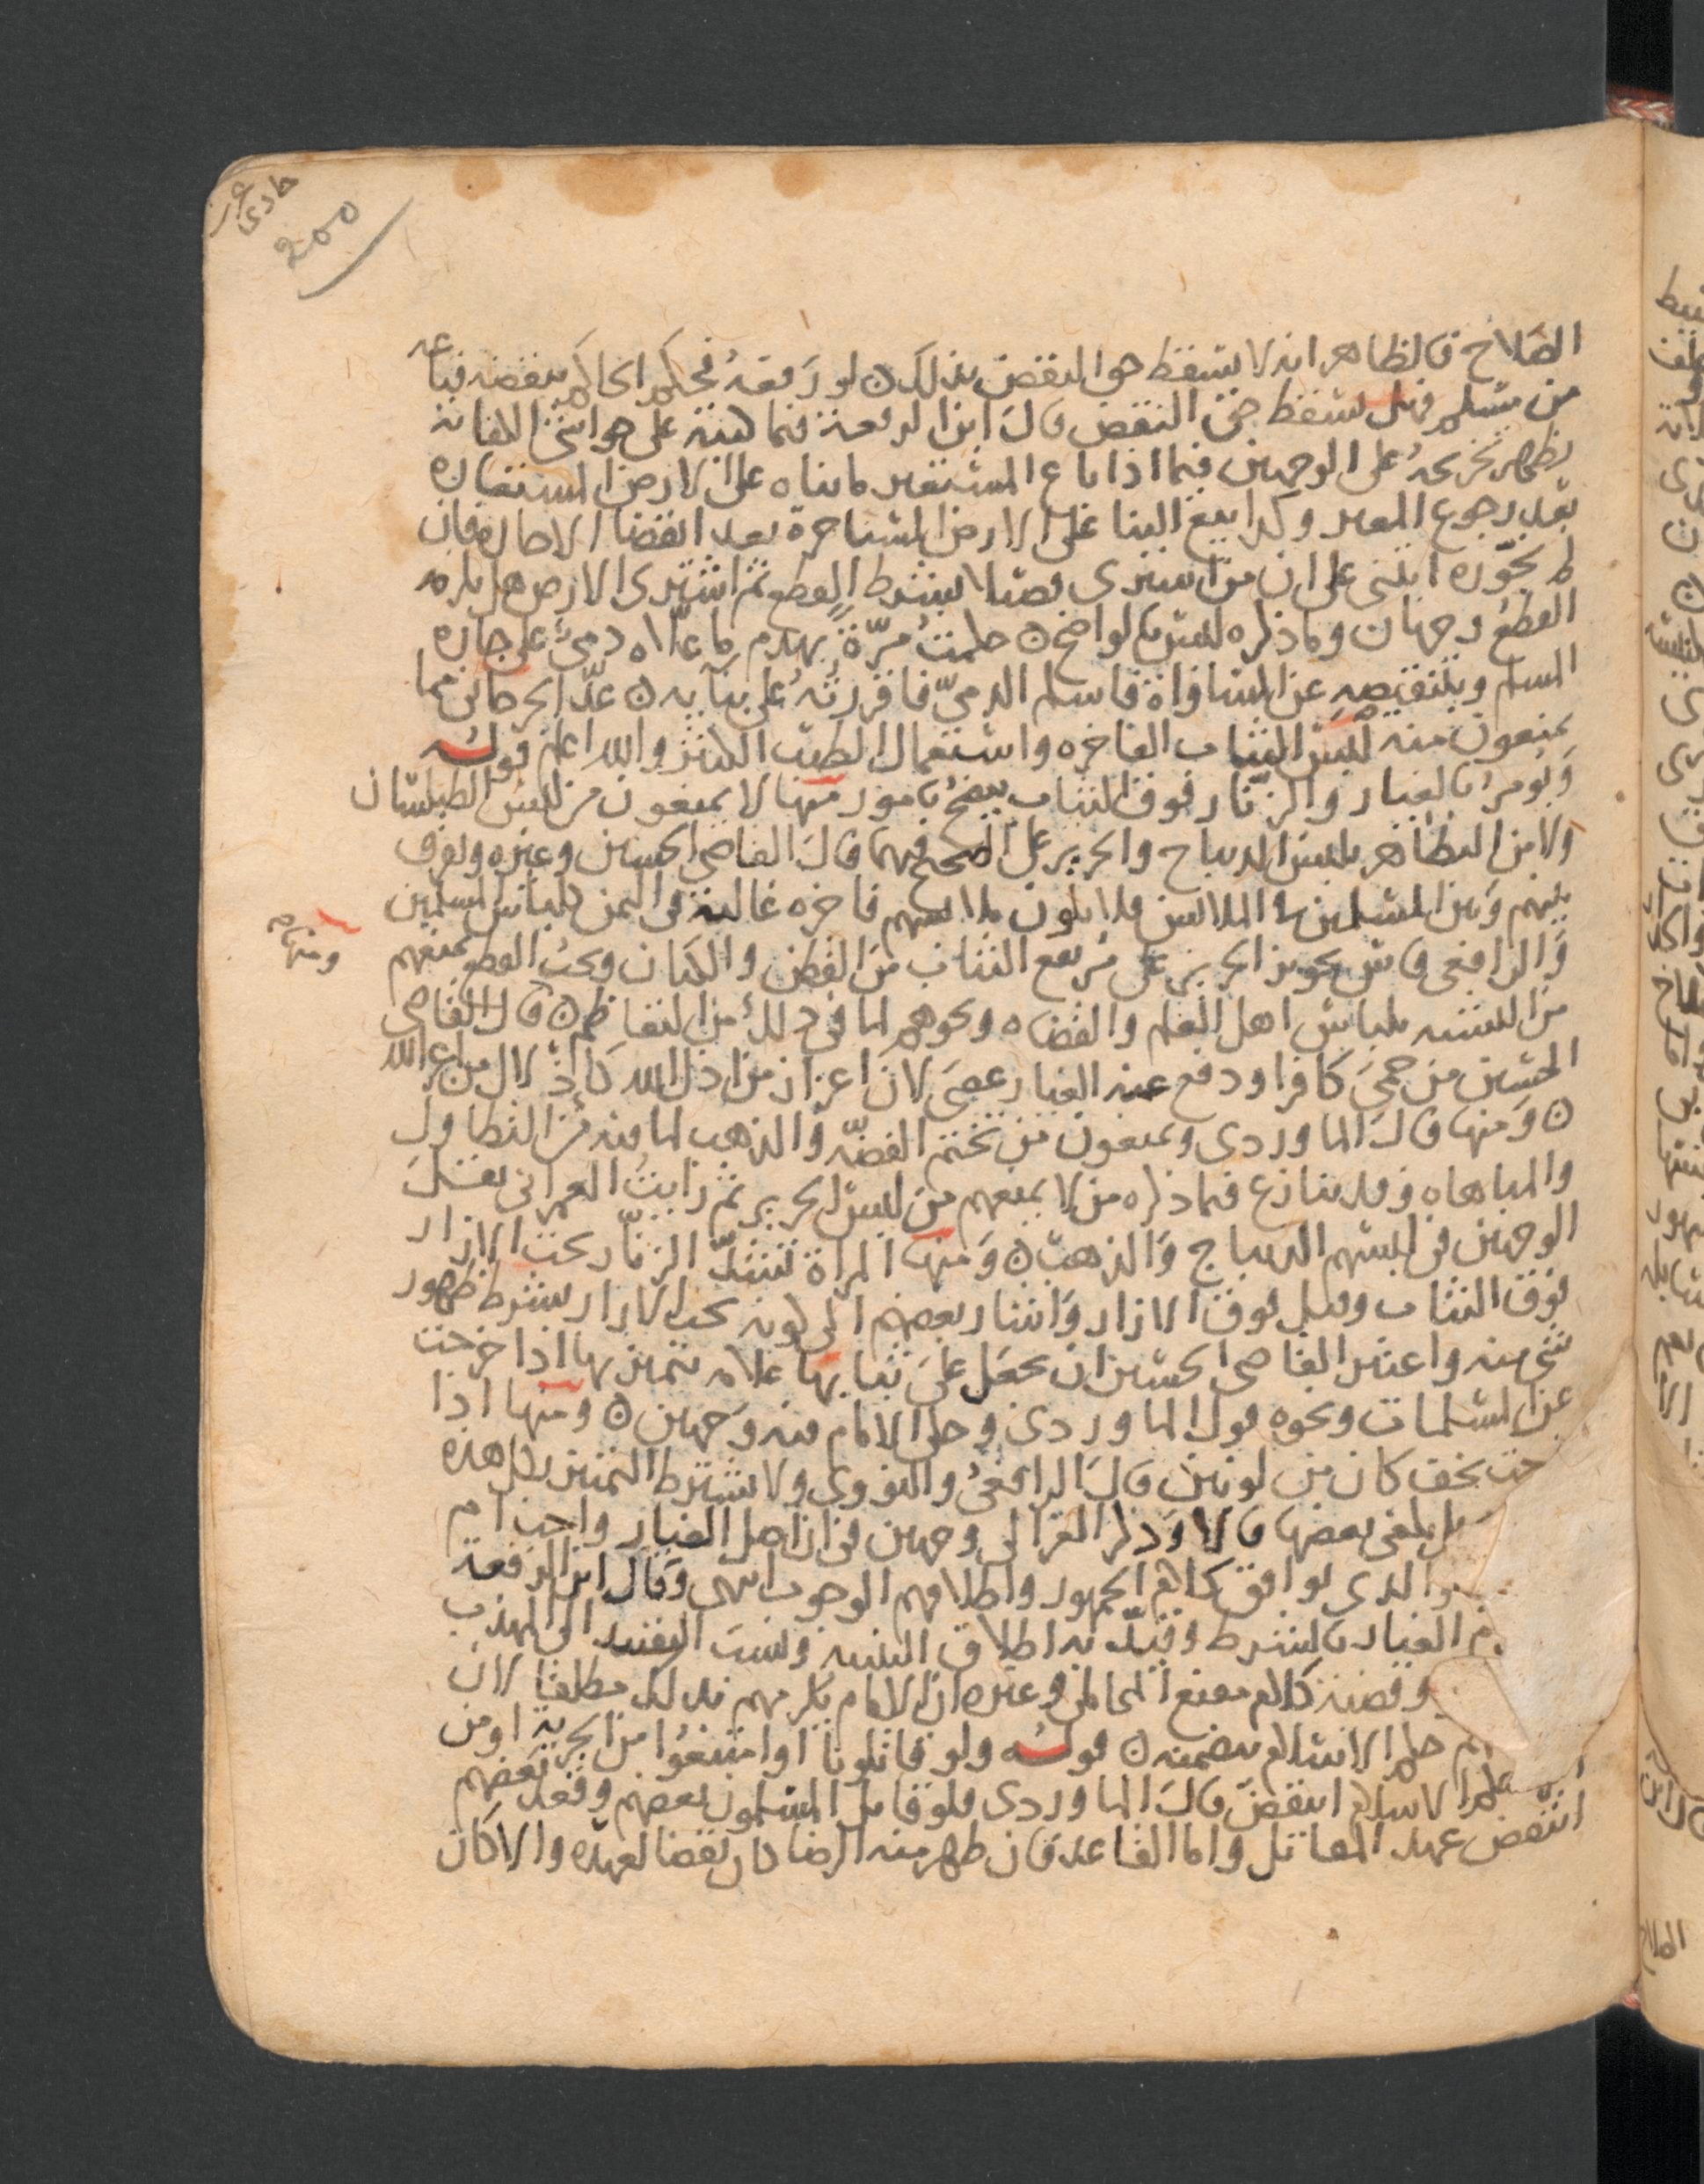 حادى عشر
200
الصلاح فالظاهر انه لا يسقط حق النقض بذلك ن لو رفعه فحكم الحاكم بنقضه فباعه
من مسلم فهل يسقط حق النقض قال ابن الرفعة فيما هنته على حواشى الكفاية
يظهر تخريجه على الوجهين فيما اذا باع المستعير ما بناه على الارض المستعاره
بعد رجوع المعير وكذا بيع البنا على الارض المستاجرة بعد انقضا الاجاره فان
لم نجوزه انبنى على ان من اشترى فصيلا بشرط القطع ثم اشترى الارض هل يلزمه
القطع وجهان وما ذكره ليس بالواضح ن حكمت مرة بهدم ما علاه ذمى على جاره
المسلم وبتنقيصه عن المساواة فاسلم الذمى فاقررته على بنايه ن عد الجرجانى مما
يمنعون منه لبس الثياب الفاخره واستعمال الطيب الكثير والله اعلم قوله
ويومر بالغيار والزنار فوق الثياب يتضح بامور منها لا يمنعون من لبس الطيلسان
ولا من التظاهر بلبس الديباج والحرير على الصحيح فيهما قال القاضى الحسين وغيره ويفرق
بينهم وبين المسلمين فى الملابس فلا يكون ملابسهم فاخره غالية فى الثمن كلباس المسلمين
والرافعى قاس تجويز الحرير على مرتفع الثياب من القطن والكتان ويجب القطع بمنعهم
ومنها م
من التشبه بلباس اهل العلم والقضاه ونحوهم لما فى ذلك من التعاظم ن قال القاضى
الحسين من حمى كافرا ودفع عنه الغيار عصى لان اعزاز من اذل الله كاذلال من اعز الله
ن ومنها قال الماوردى ويمنعون من تختم الفضة والذهب لما فيه من التطاول
والمباهاه وقد ينازع فيما ذكره من لا يمنعهم من لبس الحرير ثم رايت العمرانى نقل
الوجهين فى لبسهم الديباج والذهب ن ومنها المراة تشد الزنار تحت الازار
فوق الثياب وقيل فوق الازار واشار بعضهم الى كونه تحت الازار بشرط ظهور
شى منه واعتبر القاضى الحسين ان يجعل على ثيابها علامه تتميز بها اذا خرجت
عن المسلمات ونحوه قول الماوردى وحكى الامام فيه وجهين ن ومنها اذا
حت بخف كان من لونين قال الرافعى والنووى ولا يشترط التمييز بكل هذه
بل يكفى بعضها قالا وذكر الغزالى وجهين فى ان اصل الغيار واجب ام
والذى يوافق كلام الجمهور واطلاقهم الوجوب انتهى وقال ابن الرفعة
الغيار بالشرط وقيد به اطلاق التنبيه ونسب التقييد الى المهذب
وقضية كلام مقنع المحاملى وغيره ان الامام يلزمهم بذلك مطلقا لان
حكم الاسلام يتضمنه ن قوله ولو قاتلونا او امتنعوا من الجزية او من
حكم الاسلام انتقض قال الماوردى فلو قاتل المسلمون بعضهم وقعد بعضهم
انتقض عهد المقاتل واما القاعد فان ظهر منه الرضا كان نقضا لعهده والا كان